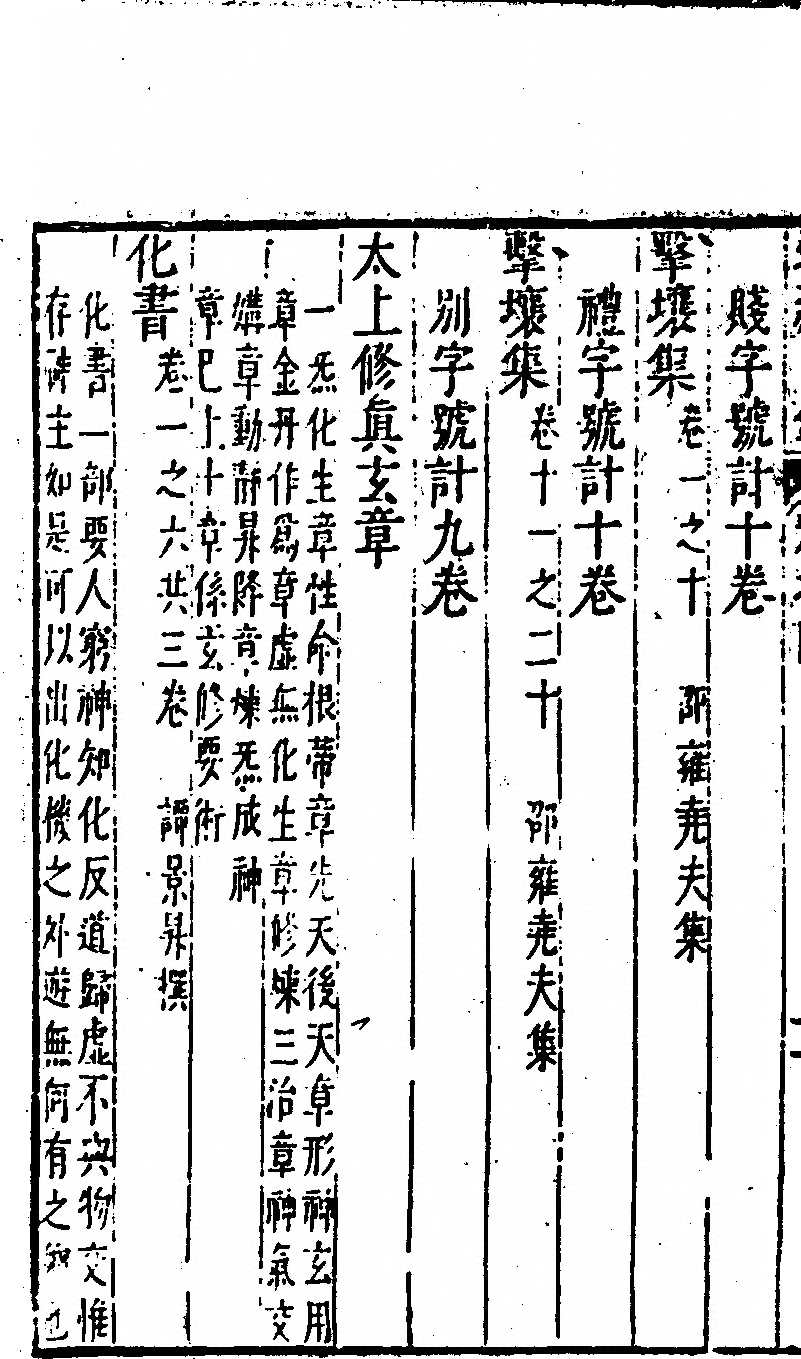 賤字號計十卷
擊壤集卷一之十 邵雍堯夫集
禮字號計十卷
擊壤集卷十一之二十 邵雍堯夫集
別字號計九卷
太上修眞玄章
一炁化生章性命根蒂章先天後天章形神玄用
章金丹作爲章虛無化生章修煉三治章神氣交
媾章動靜昇降章煉炁成神
章已上十章係玄修要術
化書卷一之六共三卷 譚景昇撰
化書一部要人窮神知化反道歸虛不與物交惟
存 主如是可以出化機之外遊無何有之 也